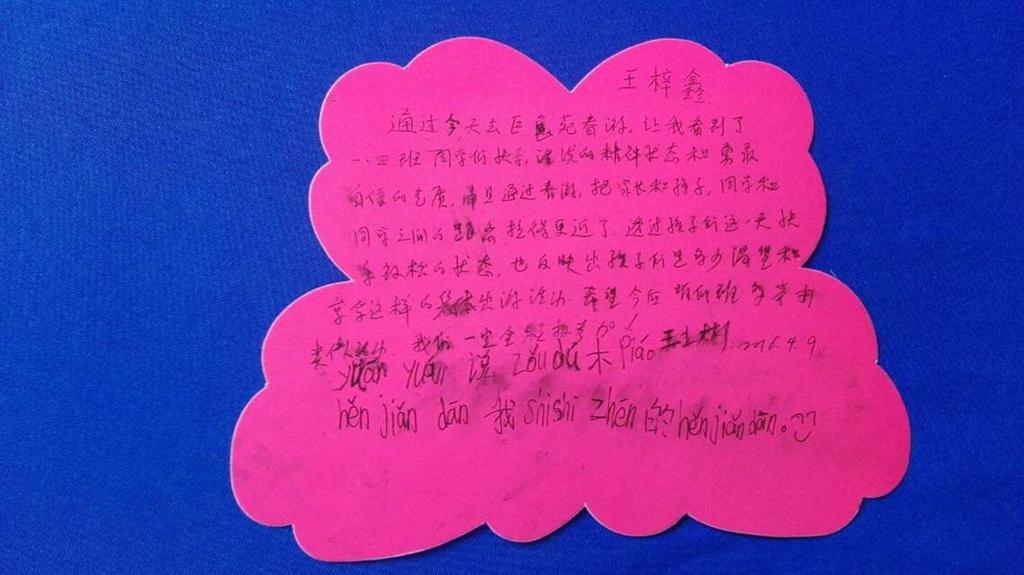 王梓鑫
通过今天去巨苑春游,让我看到了
一.四班同学们快乐,活泼的精神状态和勇敢
自信的气质.并且通过春游,把家长和孩子,同学和
同学之间的距离拉得更近了.透过孩子们这一天快
乐放松的状态,也反映出孩子们是多少渴望和
享受这样的集体出游活动.希望今后咱们班多举办
类似活动.我们一定全力支持!2016.4.9
yuán yuán 说 zǒu dú 木 piáo
hěn jiǎn dān 我 shì shì zhēn 的 hěn jiǎn dān。